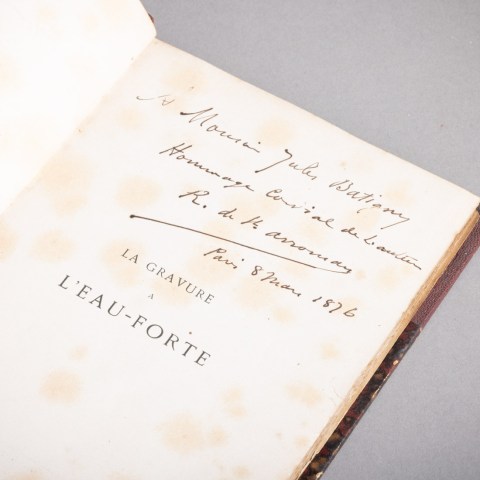 A Monsieur Jules Batigny
Hommage Cordial de l'auteur
R. de
Paris 8 Mars 1876
LA GRAVURE
A
L'EAU-FORTE